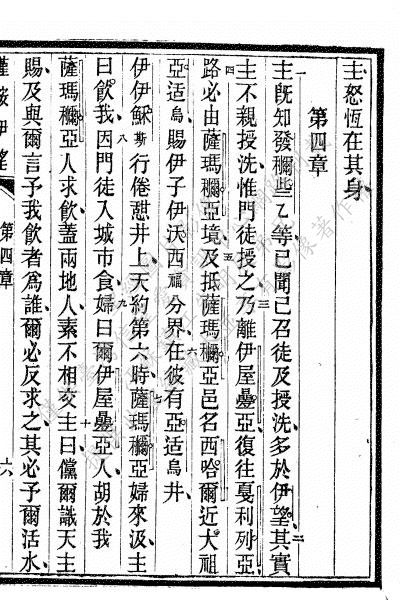 主怒恆在其身
第四章
一主旣知發穪些乙等已聞己召徒及授洗多於伊望二其實
主不親授洗惟門徒授之三乃離伊屋疉亞復往戛利列亞
四路必由薩瑪穪亞境五及抵薩瑪穪亞邑名西哈爾近大祖
亞适烏賜伊子伊沃西福分界六在彼有亞适烏井
伊伊穌斯行倦憇井上天約第六時七薩瑪穪亞婦來汲主
曰飲我八因門徒入城市食九婦曰爾伊屋疉亞人胡於我
薩瑪穪亞人求飲蓋兩地人素不相交十主曰儻爾識天主
賜及與爾言予我飲者爲誰爾必反求之其必予爾活水
伊望 第四章 六